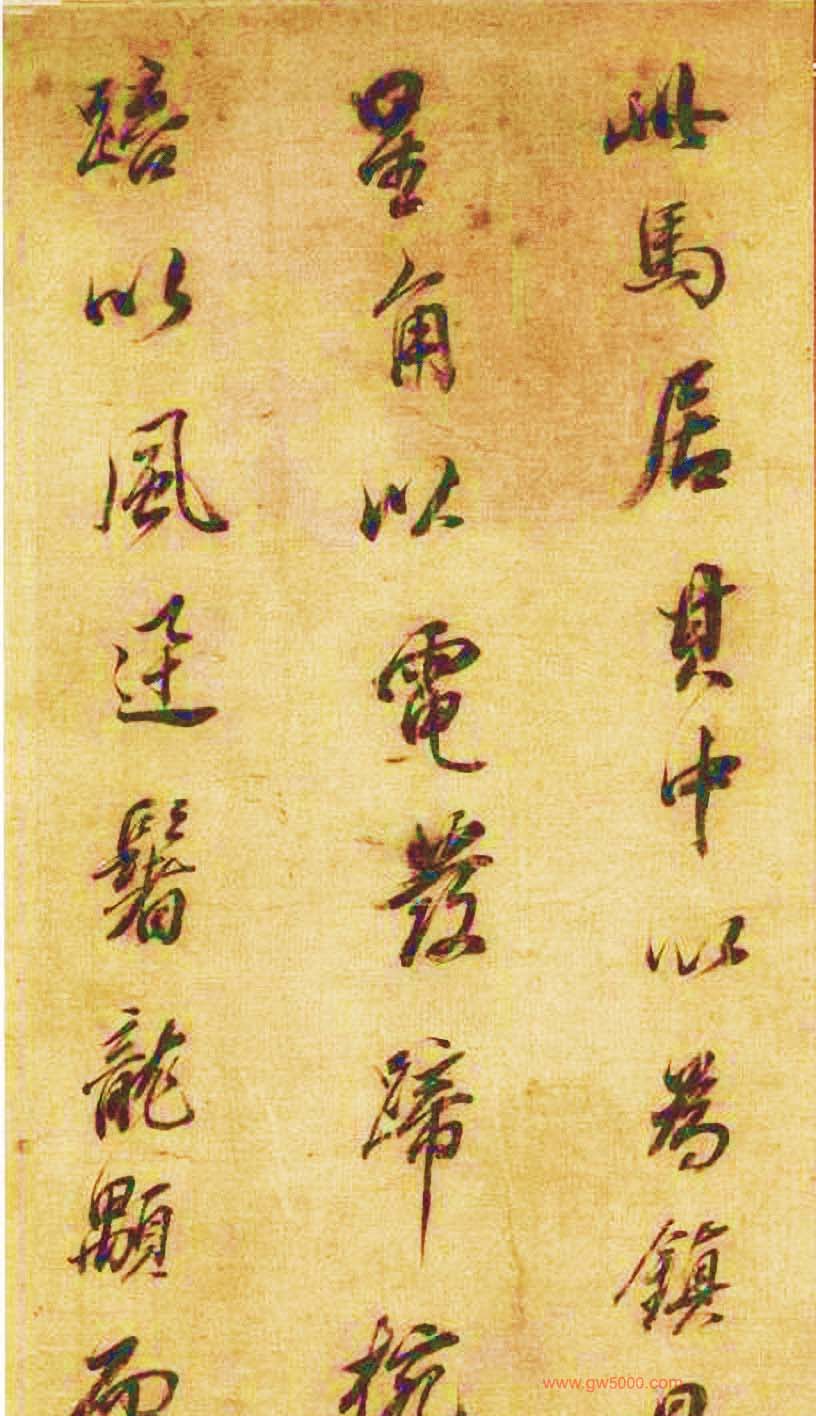 此馬居其中以為鎮
星角以電發蹄椀
踣以風迅鬐龍顒而
www.gw5000.com